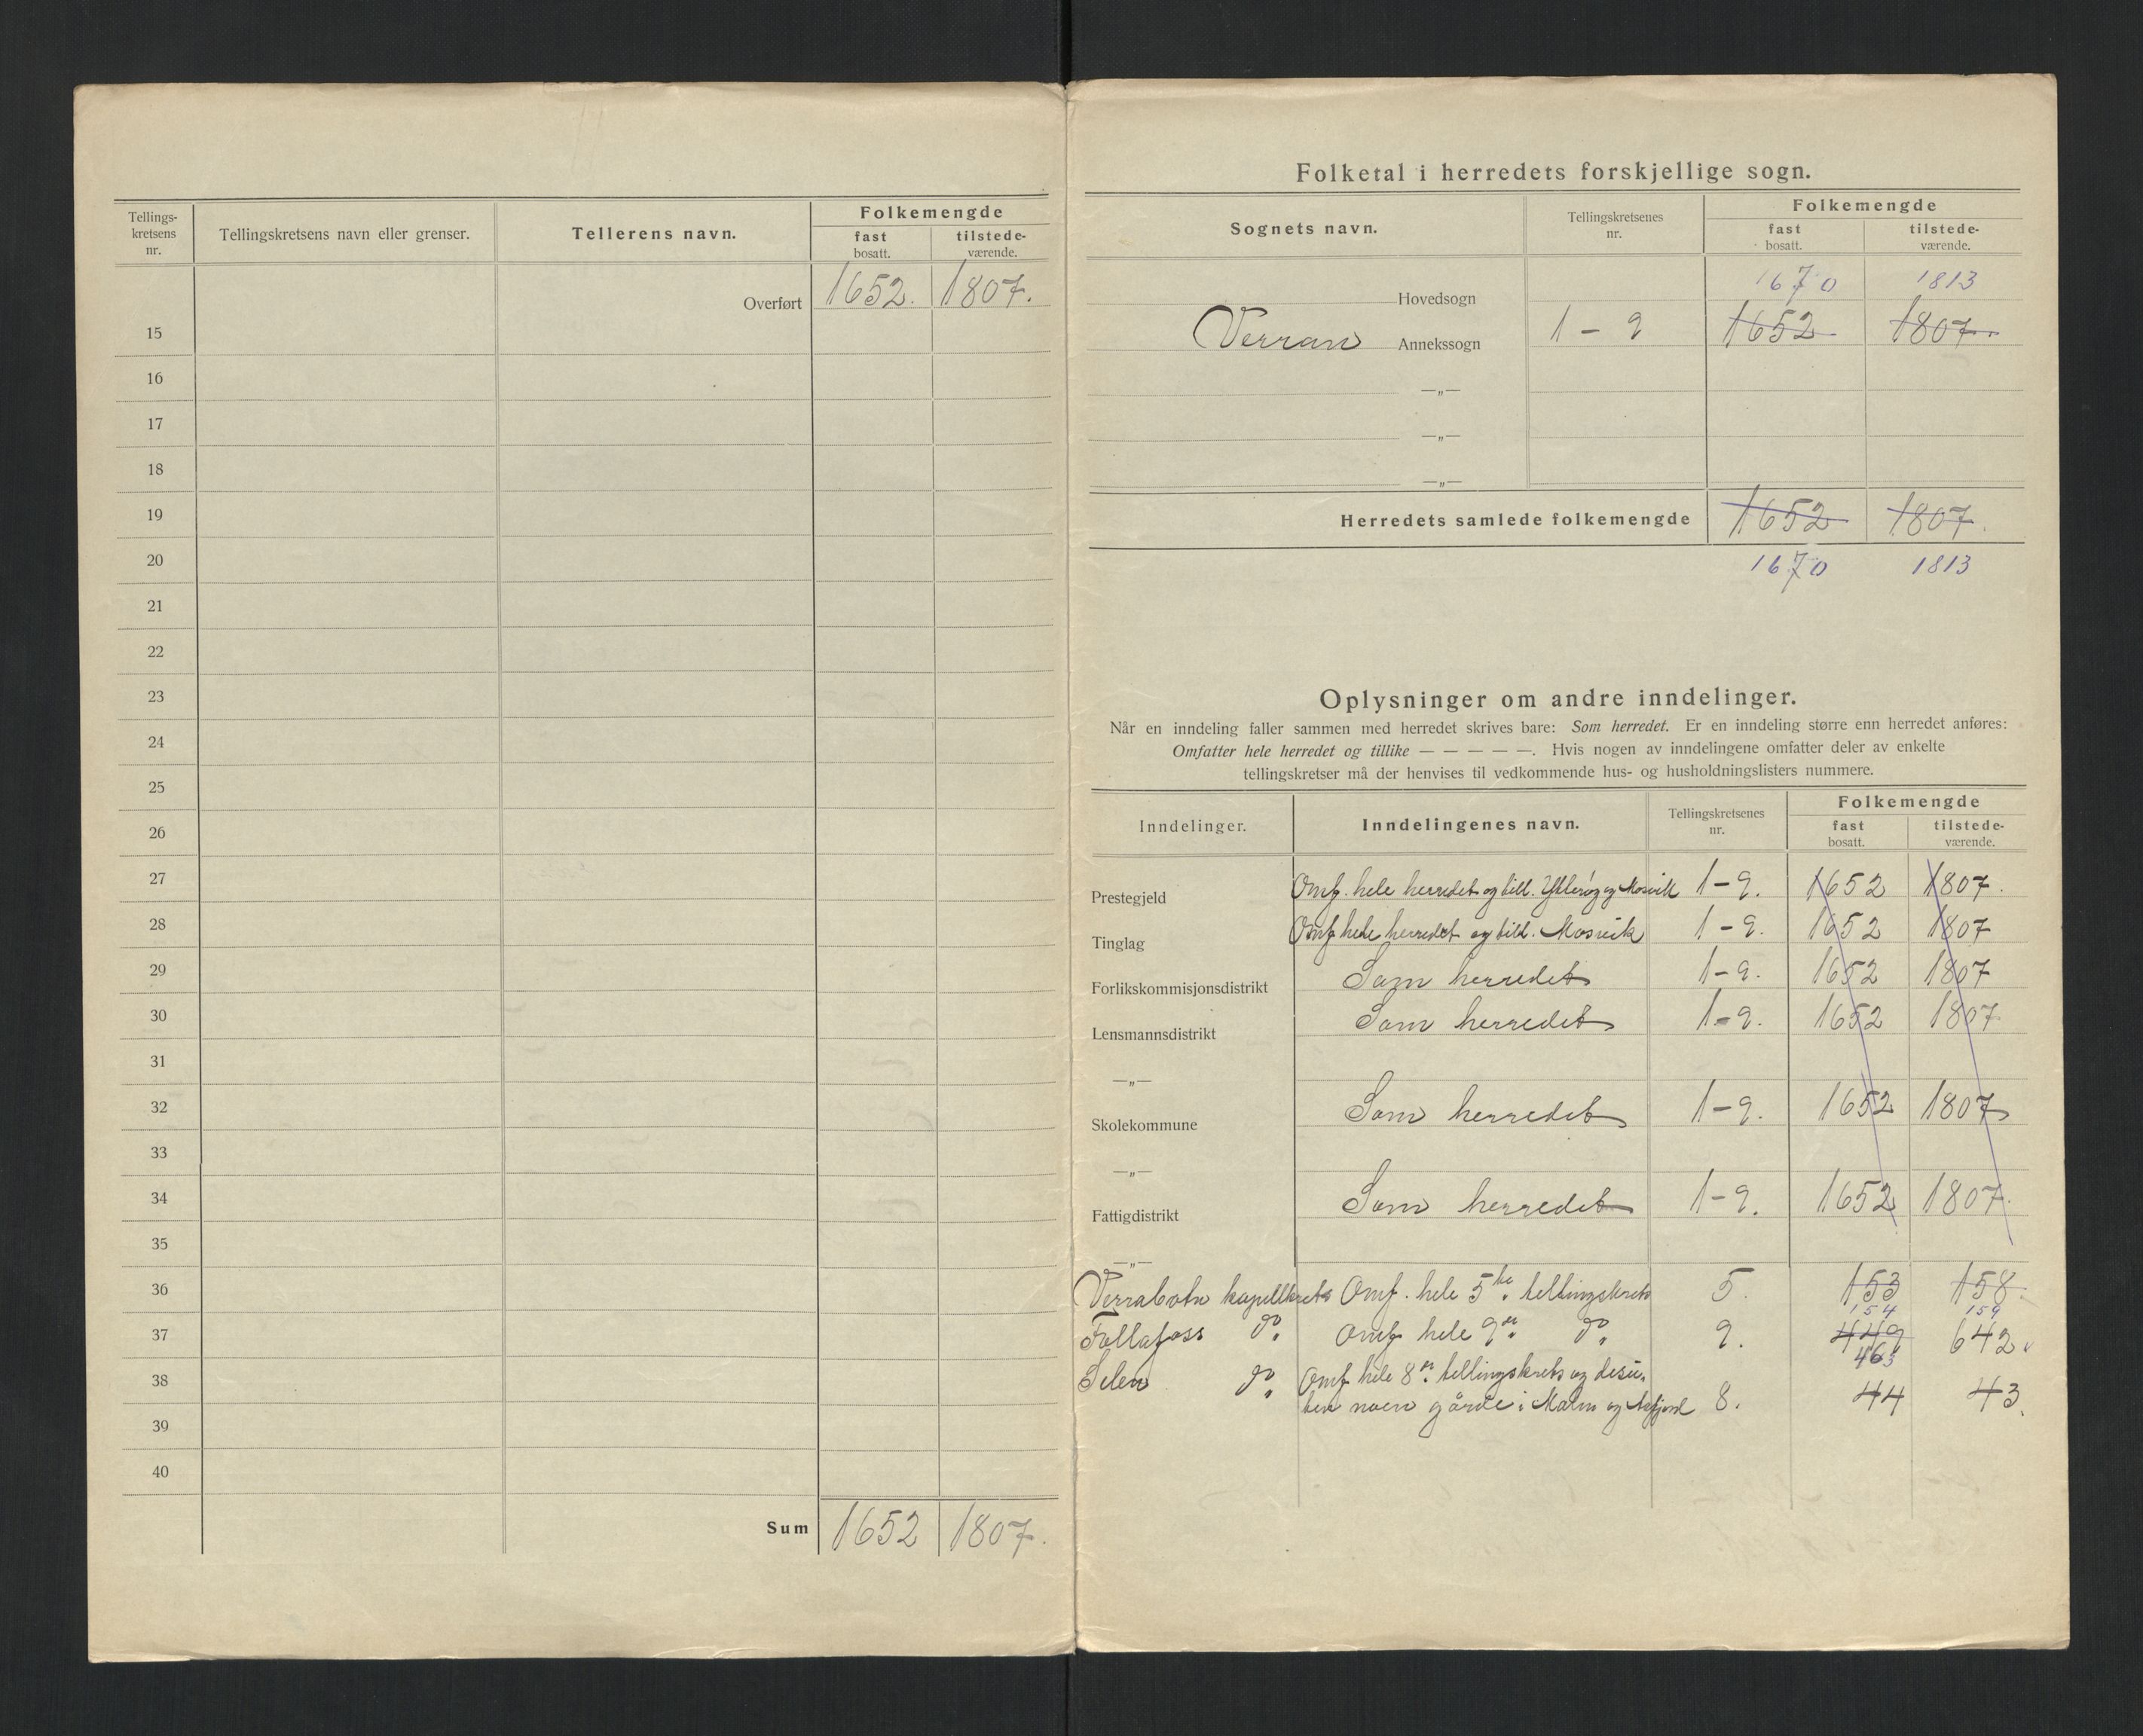 Tellings-
kretsens
nr.
Tellingskretsens navn eller grenser.
Tellerens navn.
Folkemengde
fast
bosatt.
tilstede-
værende.
Overført 1652. 1807.
15
16
17
18
19
20
21
22
23
24
25
26
27
28
29
30
31
32
33
34
35
36
37
38
39
40
Sum 1652 1807.
Folketal i herredets forskjellige sogn.
Sognets navn.
Tellingskretsenes
nr.
Folkemengde
fast
bosatt.
tilstede-
værende.
1670 1813
Hovedsogn
Verran Annekssogn 1 - 9 1652 1807.
—„—
—„—
—„—
Herredets samlede folkemengde 1652 1807.
1670 1813
Oplysninger om andre inndelinger.
Når en inndeling faller sammen med herredet skrives bare: Som herredet. Er en inndeling større enn herredet anføres:
Omfatter hele herredet og tillike — — — — —. Hvis nogen av inndelingene omfatter deler av enkelte
tellingskretser må der henvises til vedkommende hus- og husholdningslisters nummere.
Inndelinger.
Inndelingenes navn.
Tellingskretsenes
nr.
Folkemengde
fast
bosatt.
tilstede-
værende.
Prestegjeld Omf. hele herredet og till. Ytterøy og Mosvik 1-9. 1652 1807.
Tinglag Omf hele herredet og till. Mosvik 1-9. 1652 1807
Forlikskommisjonsdistrikt Som herredet 1-9. 1652 1807
Lensmannsdistrikt Som herredet 1-9. 1652 1807.
—„—
Skolekommune Som herredet 1-9. 1652 1807
—„—
Fattigdistrikt Som herredet 1-9. 1652 1807.
—„—
Verrabotn kapellkrets Omf. hele 5te tellingskrets 5. 153 158.
154 159
Follafoss do. Omf hele 9de do. 9. 449 642.
463
Selen do. Omf hele 8de tellingskrets og desu-
ten noen gårde i Malm og 8. 44 43.